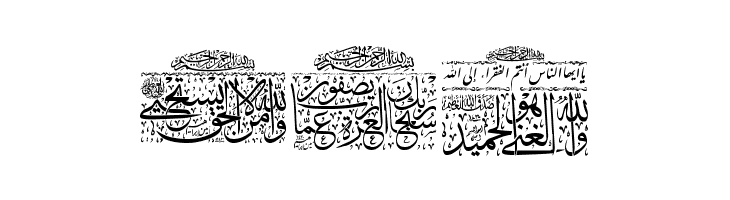 بسم الله الرحمن الرحيم
والله لا يستحيي من الحق
بسم الله الرحمن الرحيم
سبحان ربك رب العزة عما يصفون
بسم الله الرحمن الرحيم
يا ايها الناس أنتم الفقراء إلى الله
والله هو الغني الحميد
صدق الله العظيم